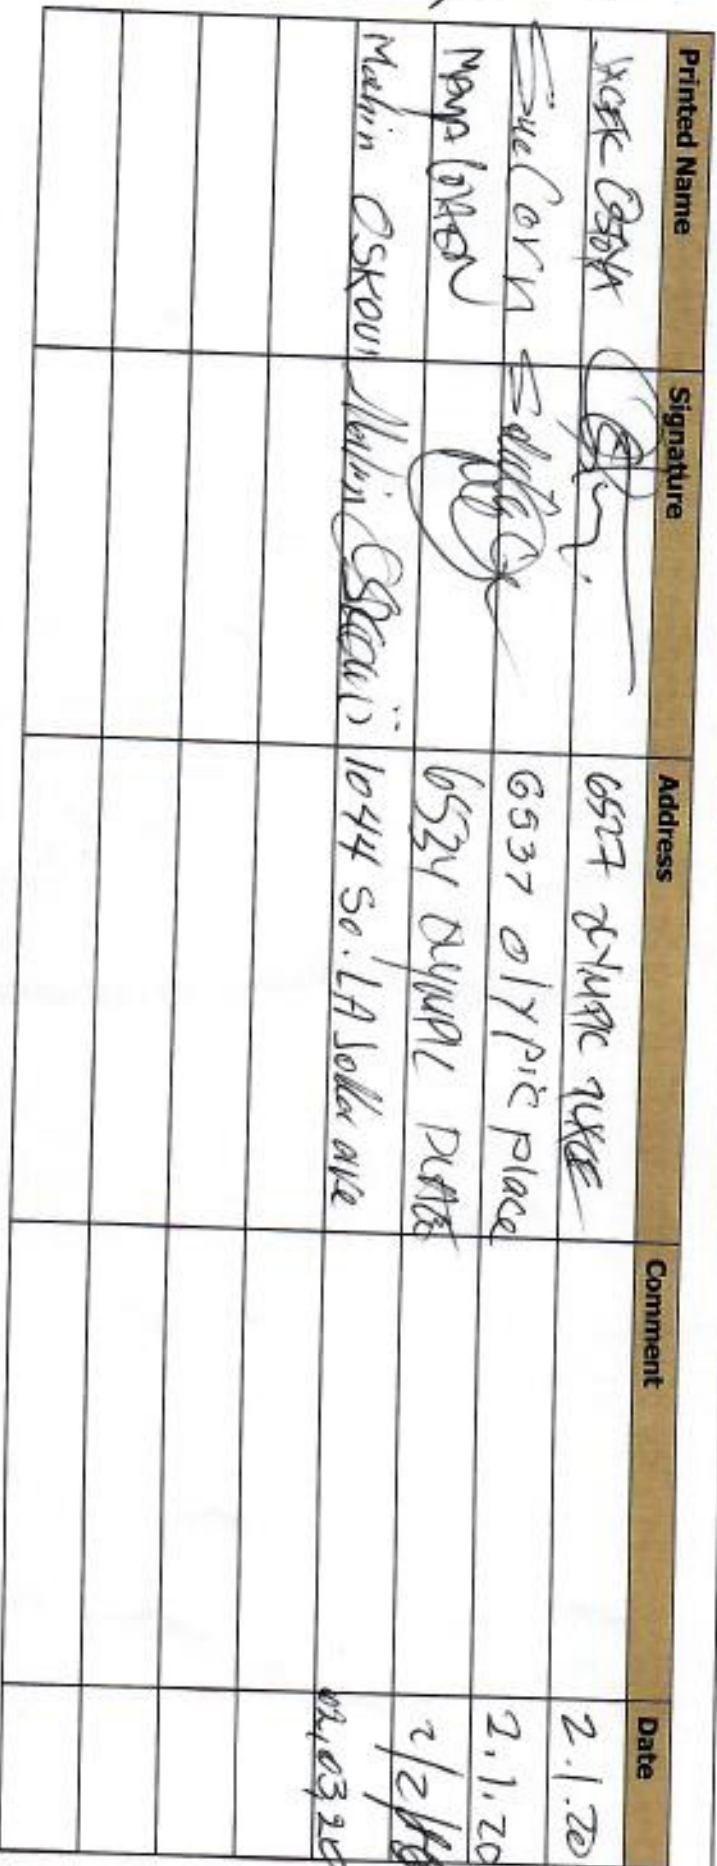 Printed Name Signature Address Comment Date
JACEK 6527 PLACE 2.1.20
Sue Corn 6537 olypic place 2.1.20
Maya COHEN 6534 OLYMPIC PLACE 2/2/
Mahin OSKOUI Mahin Oskoui 1044 So. LA Jolla ave 02,03,20